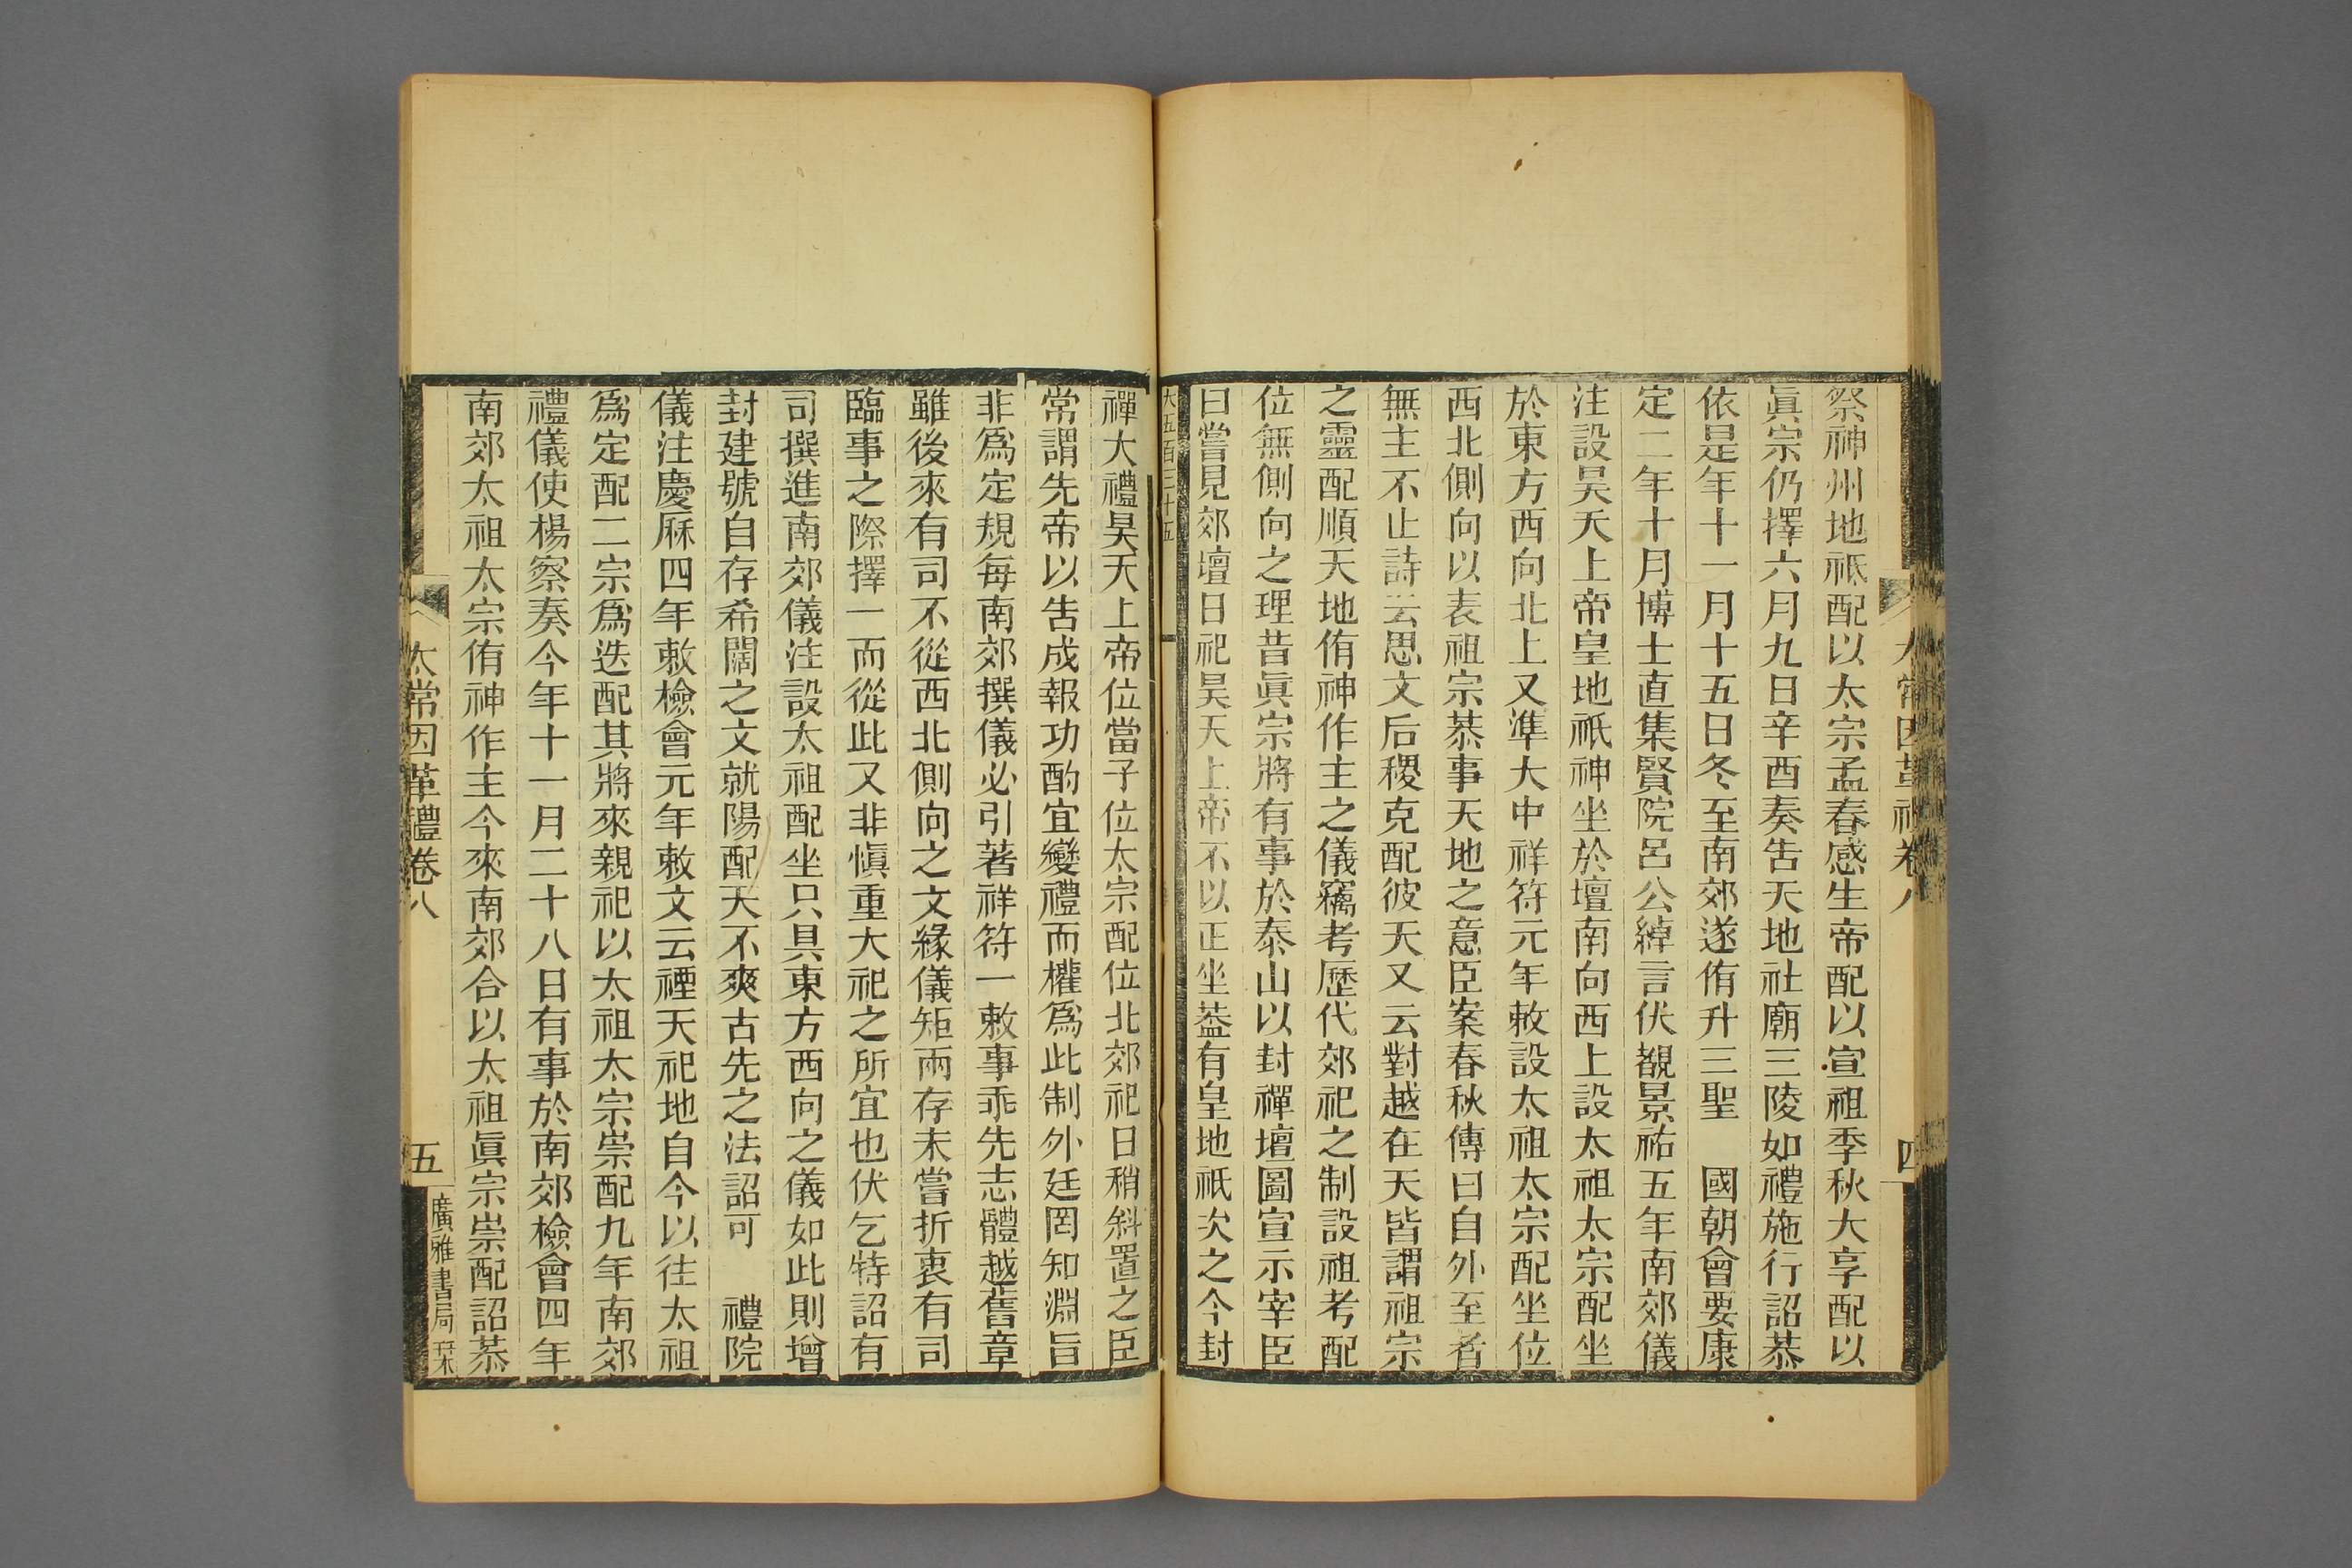 太常因革禮卷八
四
祭神州地祇配以太宗孟春感生帝配以宣祖季秋大享配以
眞宗仍擇六月九日辛酉奏吿天地社廟三陵如禮施行詔恭
依是年十一月十五日冬至南郊遂侑升三聖　國朝會要康
定二年十月博士直集賢院呂公綽言伏覩景祐五年南郊儀
注設昊天上帝皇地祇神坐於壇南向西上設太祖太宗配坐
於東方西向北上又準大中祥符元年敕設太祖太宗配坐位
西北側向以表祖宗恭事天地之意臣案春秋傳曰自外至者
無主不止詩云思文后稷克配彼天又云對越在天皆謂祖宗
之靈配順天地侑神作主之儀竊考歷代郊祀之制設祖考配
位無側向之理昔眞宗將有事於泰山以封禪壇圖宣示宰臣
曰嘗見郊壇日祀昊天上帝不以正坐葢有皇地祇次之今封
大五百三十五
禪大禮昊天上帝位當子位太宗配位北郊祀日稍斜置之臣
常謂先帝以吿成報功酌宜變禮而權爲此制外廷罔知淵旨
非爲定規每南郊撰儀必引著祥符一敕事乖先志體越舊章
雖後來有司不從西北側向之文緣儀矩兩存未嘗折衷有司
臨事之際擇一而從此又非愼重大祀之所宜也伏乞特詔有
司撰進南郊儀注設太祖配坐只具東方西向之儀如此則增
封建號自存希闊之文就陽配天不爽古先之法詔可　禮院
儀注慶厤四年敕檢會元年敕文云禋天祀地自今以往太祖
爲定配二宗爲迭配其將來親祀以太祖太宗崇配九年南郊
禮儀使楊察奏今年十一月二十八日有事於南郊檢會四年
南郊太祖太宗侑神作主今來南郊合以太祖眞宗崇配詔恭
太常因革禮卷八
五
廣雅書局栞